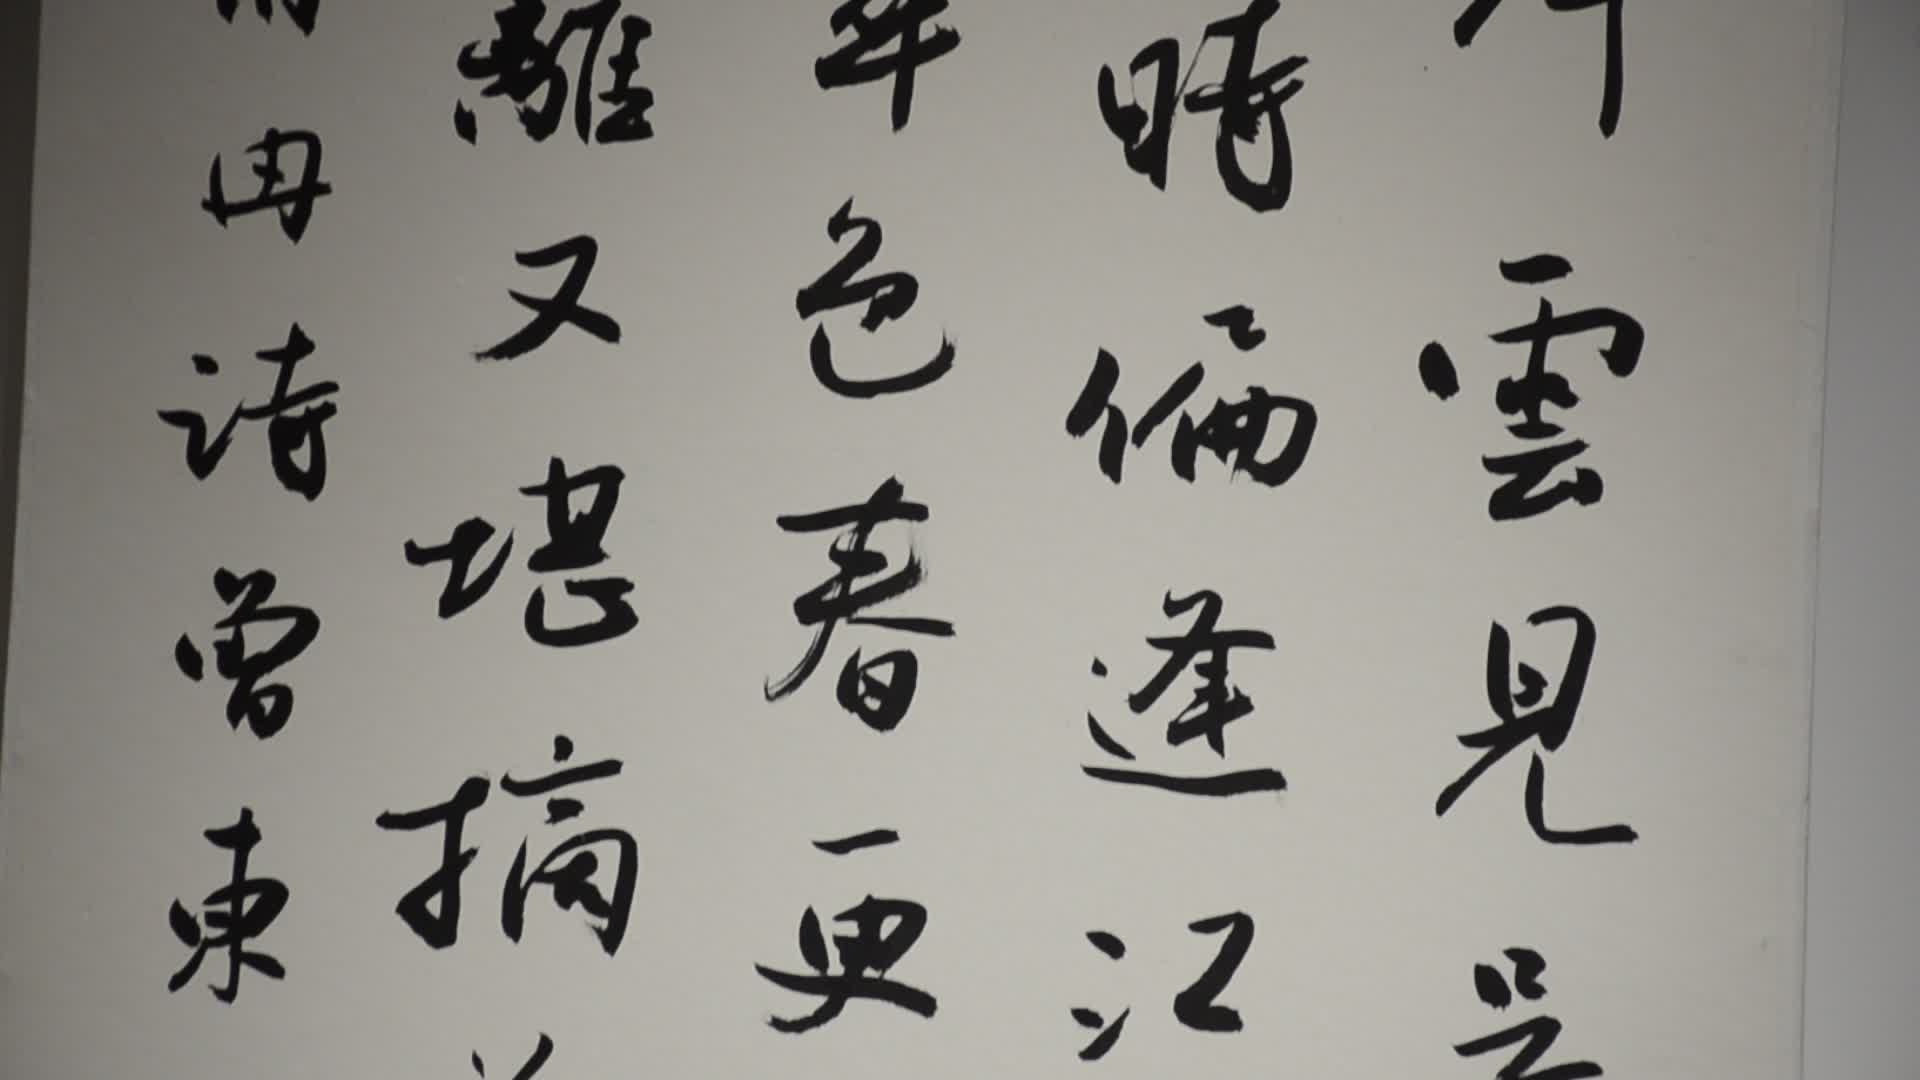 雲見
時偏逢江
年色春更
離又堪摘
冉詩曾東